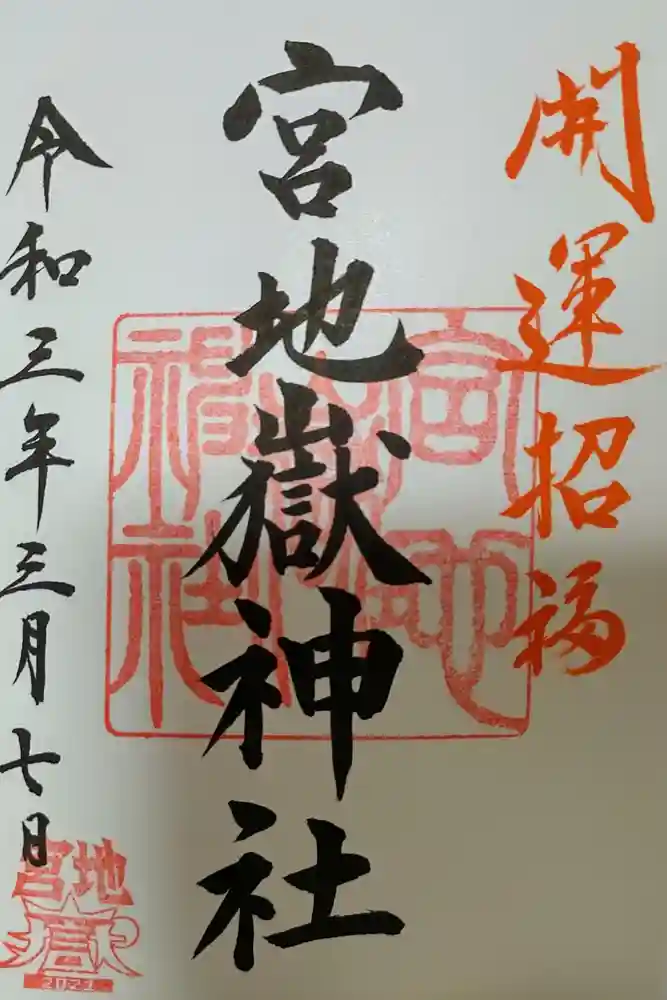 開運招福
宮地嶽神社
令和三年三月七日
宮地嶽神社
宮地
嶽
2021